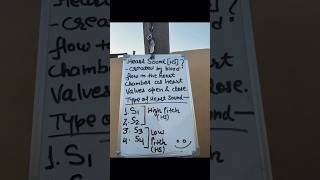 Heart Sound [HS]?
- Created by blood
flow to the heart
Chamber as heart
Valves open & close.
Type of Heart Sound—
1. S1 ] High Pitch
2. S2 ] (HS)
3. S3 ] Low
4. S4 ] Pitch
(HS)
1. S1